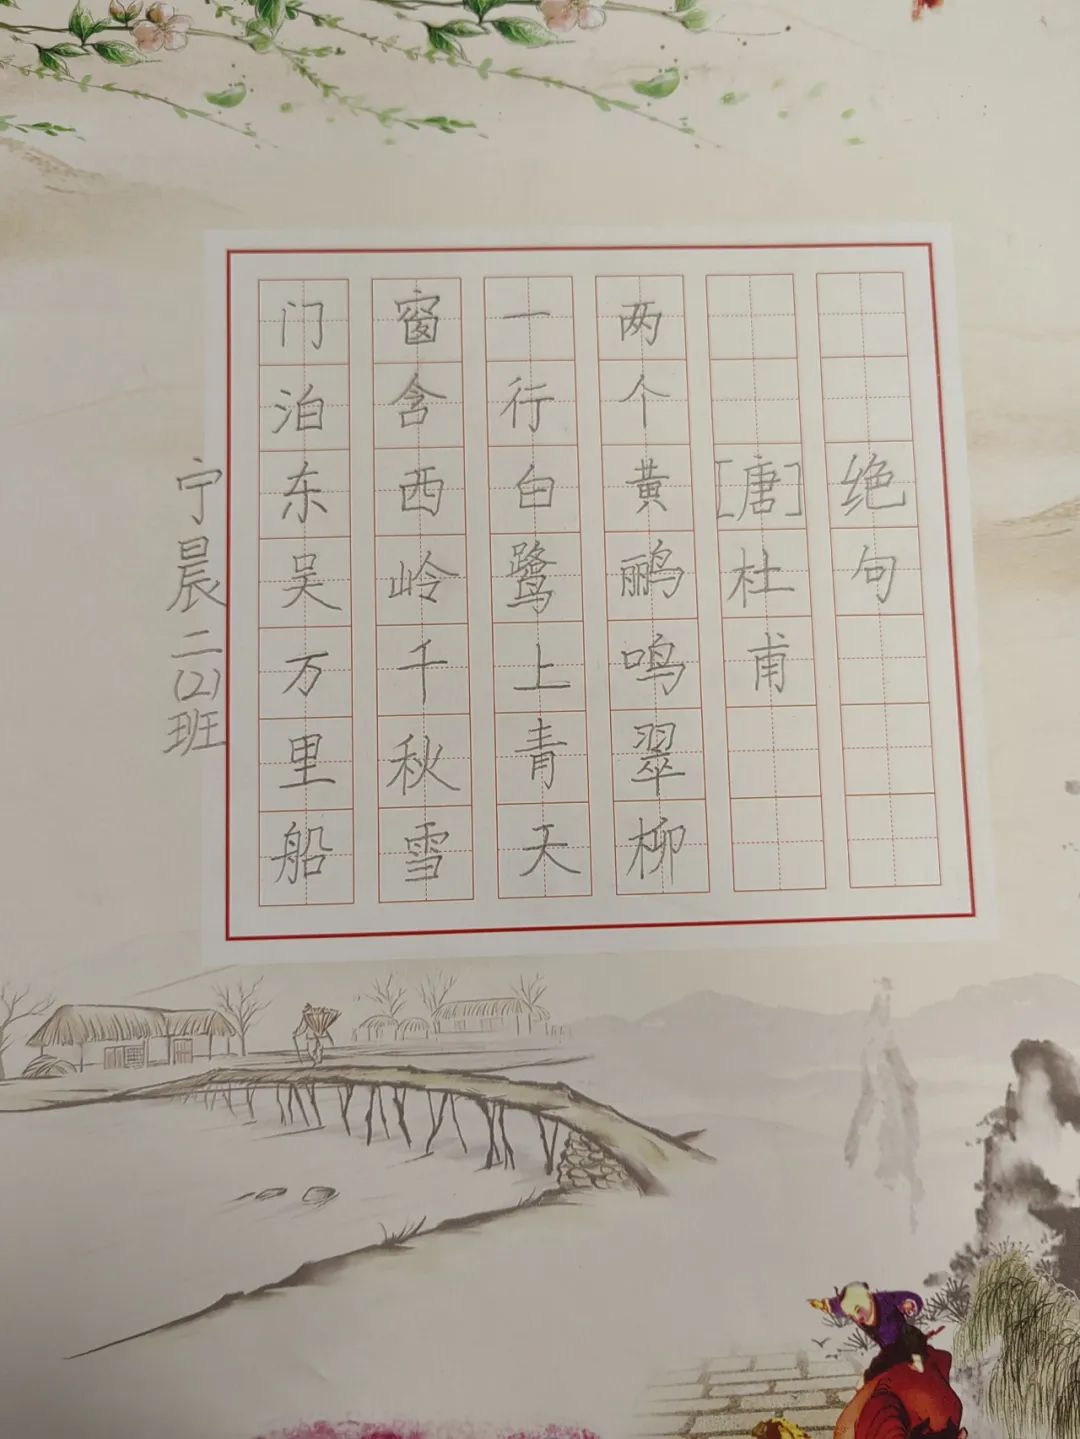 绝句
[唐]杜甫
两个黄鹂鸣翠柳
一行白鹭上青天
窗含西岭千秋雪
门泊东吴万里船
宁晨二(2)班